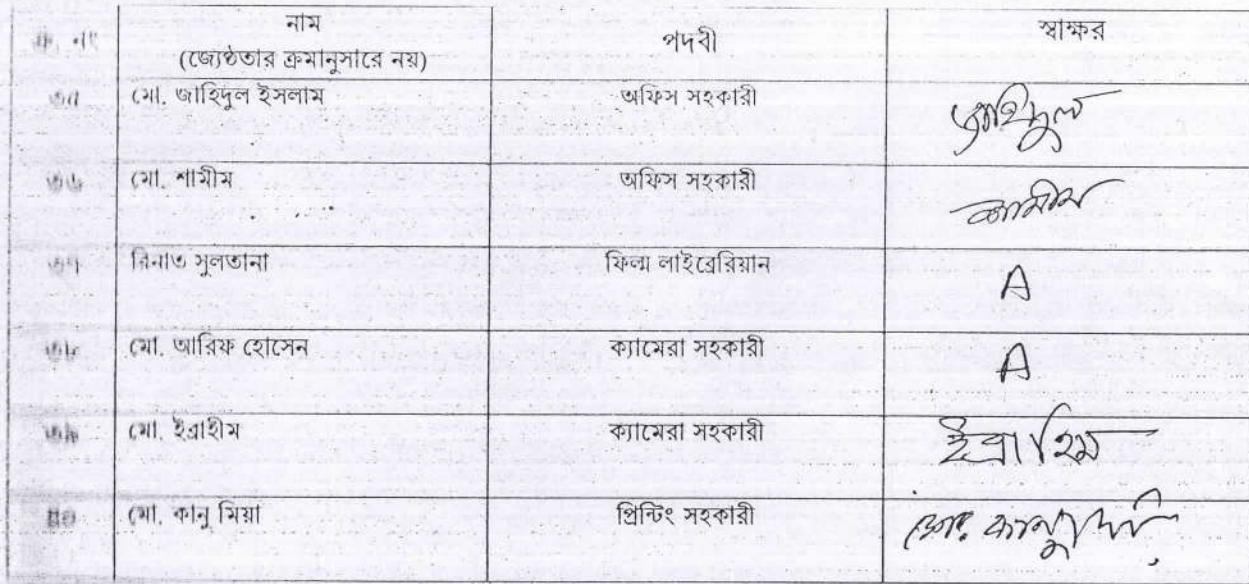 ক্র. নং নাম পদবী স্বাক্ষর
(জ্যেষ্ঠতার ক্রমানুসারে নয়)
৩৫ মো. জাহিদুল ইসলাম অফিস সহকারী জাহিদুল
৩৬ মো. শামীম অফিস সহকারী শামীম
৩৭ রিনাত সুলতানা ফিল্ম লাইব্রেরিয়ান A
৩৮ মো. আরিফ হোসেন ক্যামেরা সহকারী A
৩৯ মো. ইব্রাহীম ক্যামেরা সহকারী ইব্রাহিম
৪০ মো. কানু মিয়া প্রিন্টিং সহকারী মোঃ কানু মিয়া